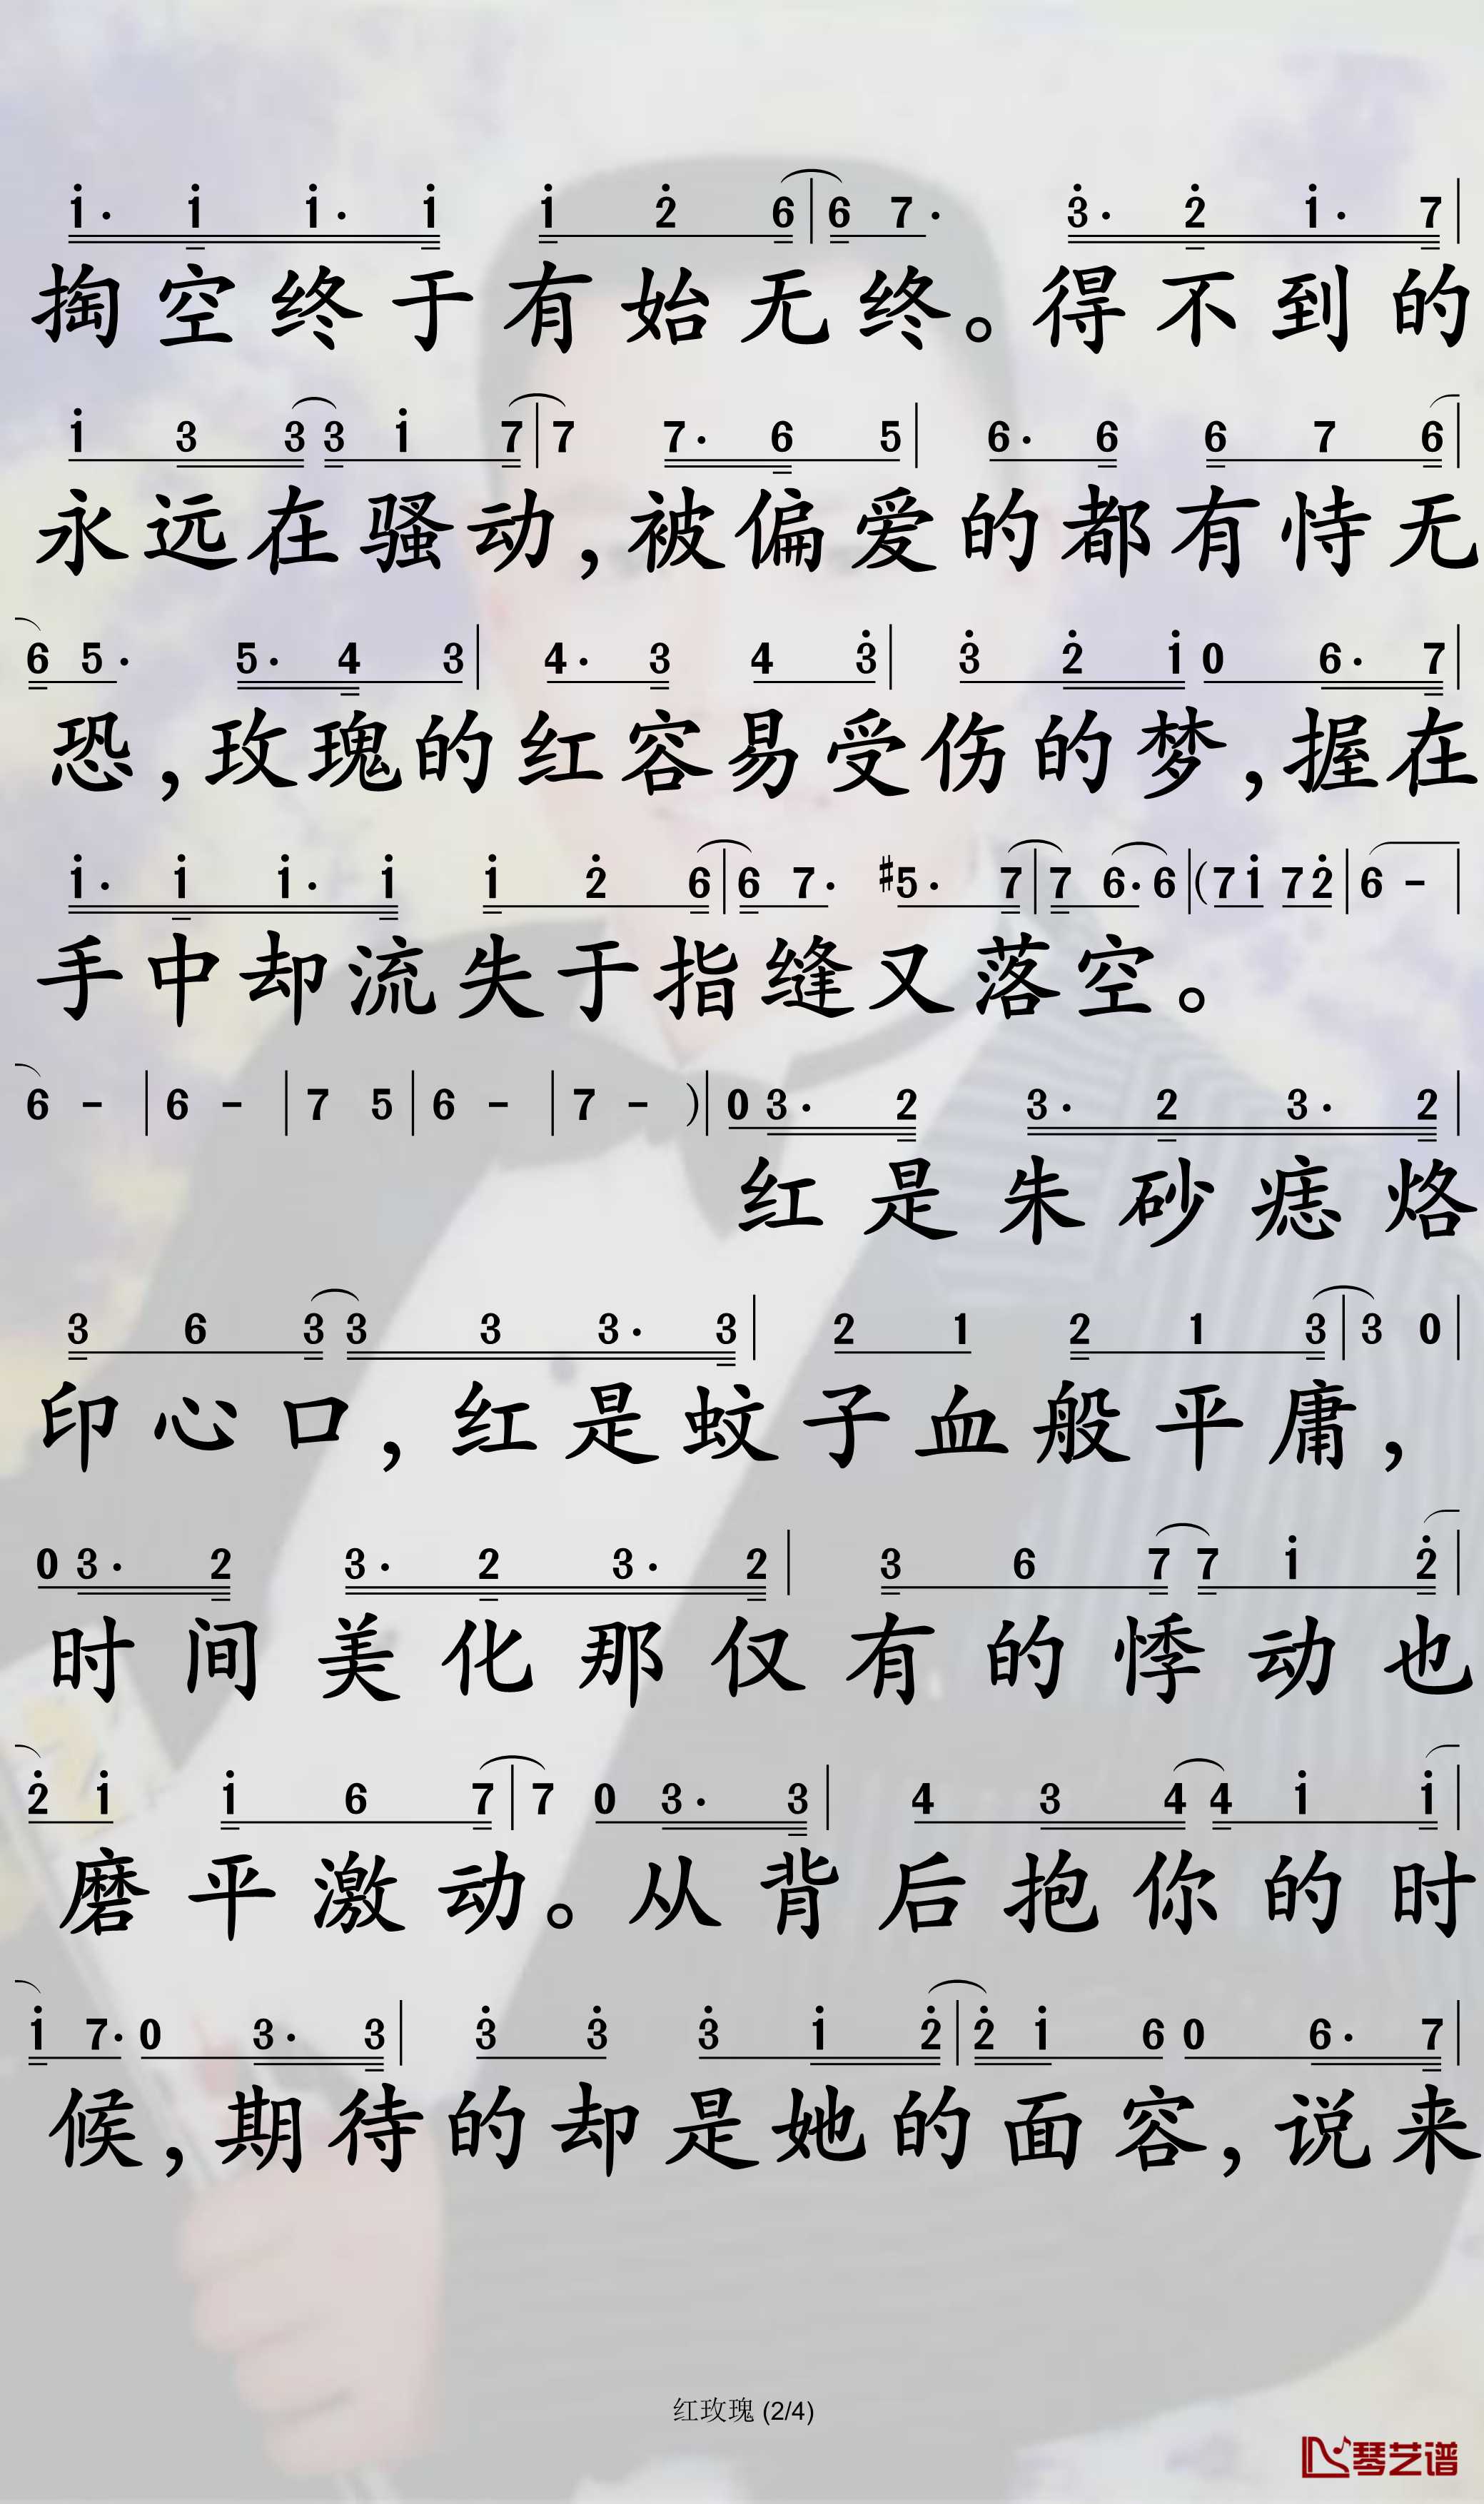 i· i i· i i 2 6 | 6 7· 3· 2 i· 7 |
掏空终于有始无终。得不到的
i 3 3 3 i 7 | 7 7· 6 5 | 6· 6 6 7 6 |
永远在骚动,被偏爱的都有恃无
6 5· 5· 4 3 | 4· 3 4 3 | 3 2 i 0 6· 7 |
恐,玫瑰的红容易受伤的梦,握在
i· i i· i i 2 6 | 6 7· #5· 7 | 7 6· 6 | (7 i 7 2 | 6 - |
手中却流失于指缝又落空。
6 - | 6 - | 7 5 | 6 - | 7 - ) | 0 3· 2 3· 2 3· 2 |
红是朱砂痣烙
3 6 3 3 3 3· 3 | 2 1 2 1 3 | 3 0 |
印心口,红是蚊子血般平庸,
0 3· 2 3· 2 3· 2 | 3 6 7 7 i 2 |
时间美化那仅有的悸动也
2 i i 6 7 | 7 0 3· 3 | 4 3 4 4 i i |
磨平激动。从背后抱你的时
i 7· 0 3· 3 | 3 3 3 i 2 | 2 i 6 0 6· 7 |
候,期待的却是她的面容,说来
红玫瑰 (2/4)
琴艺谱